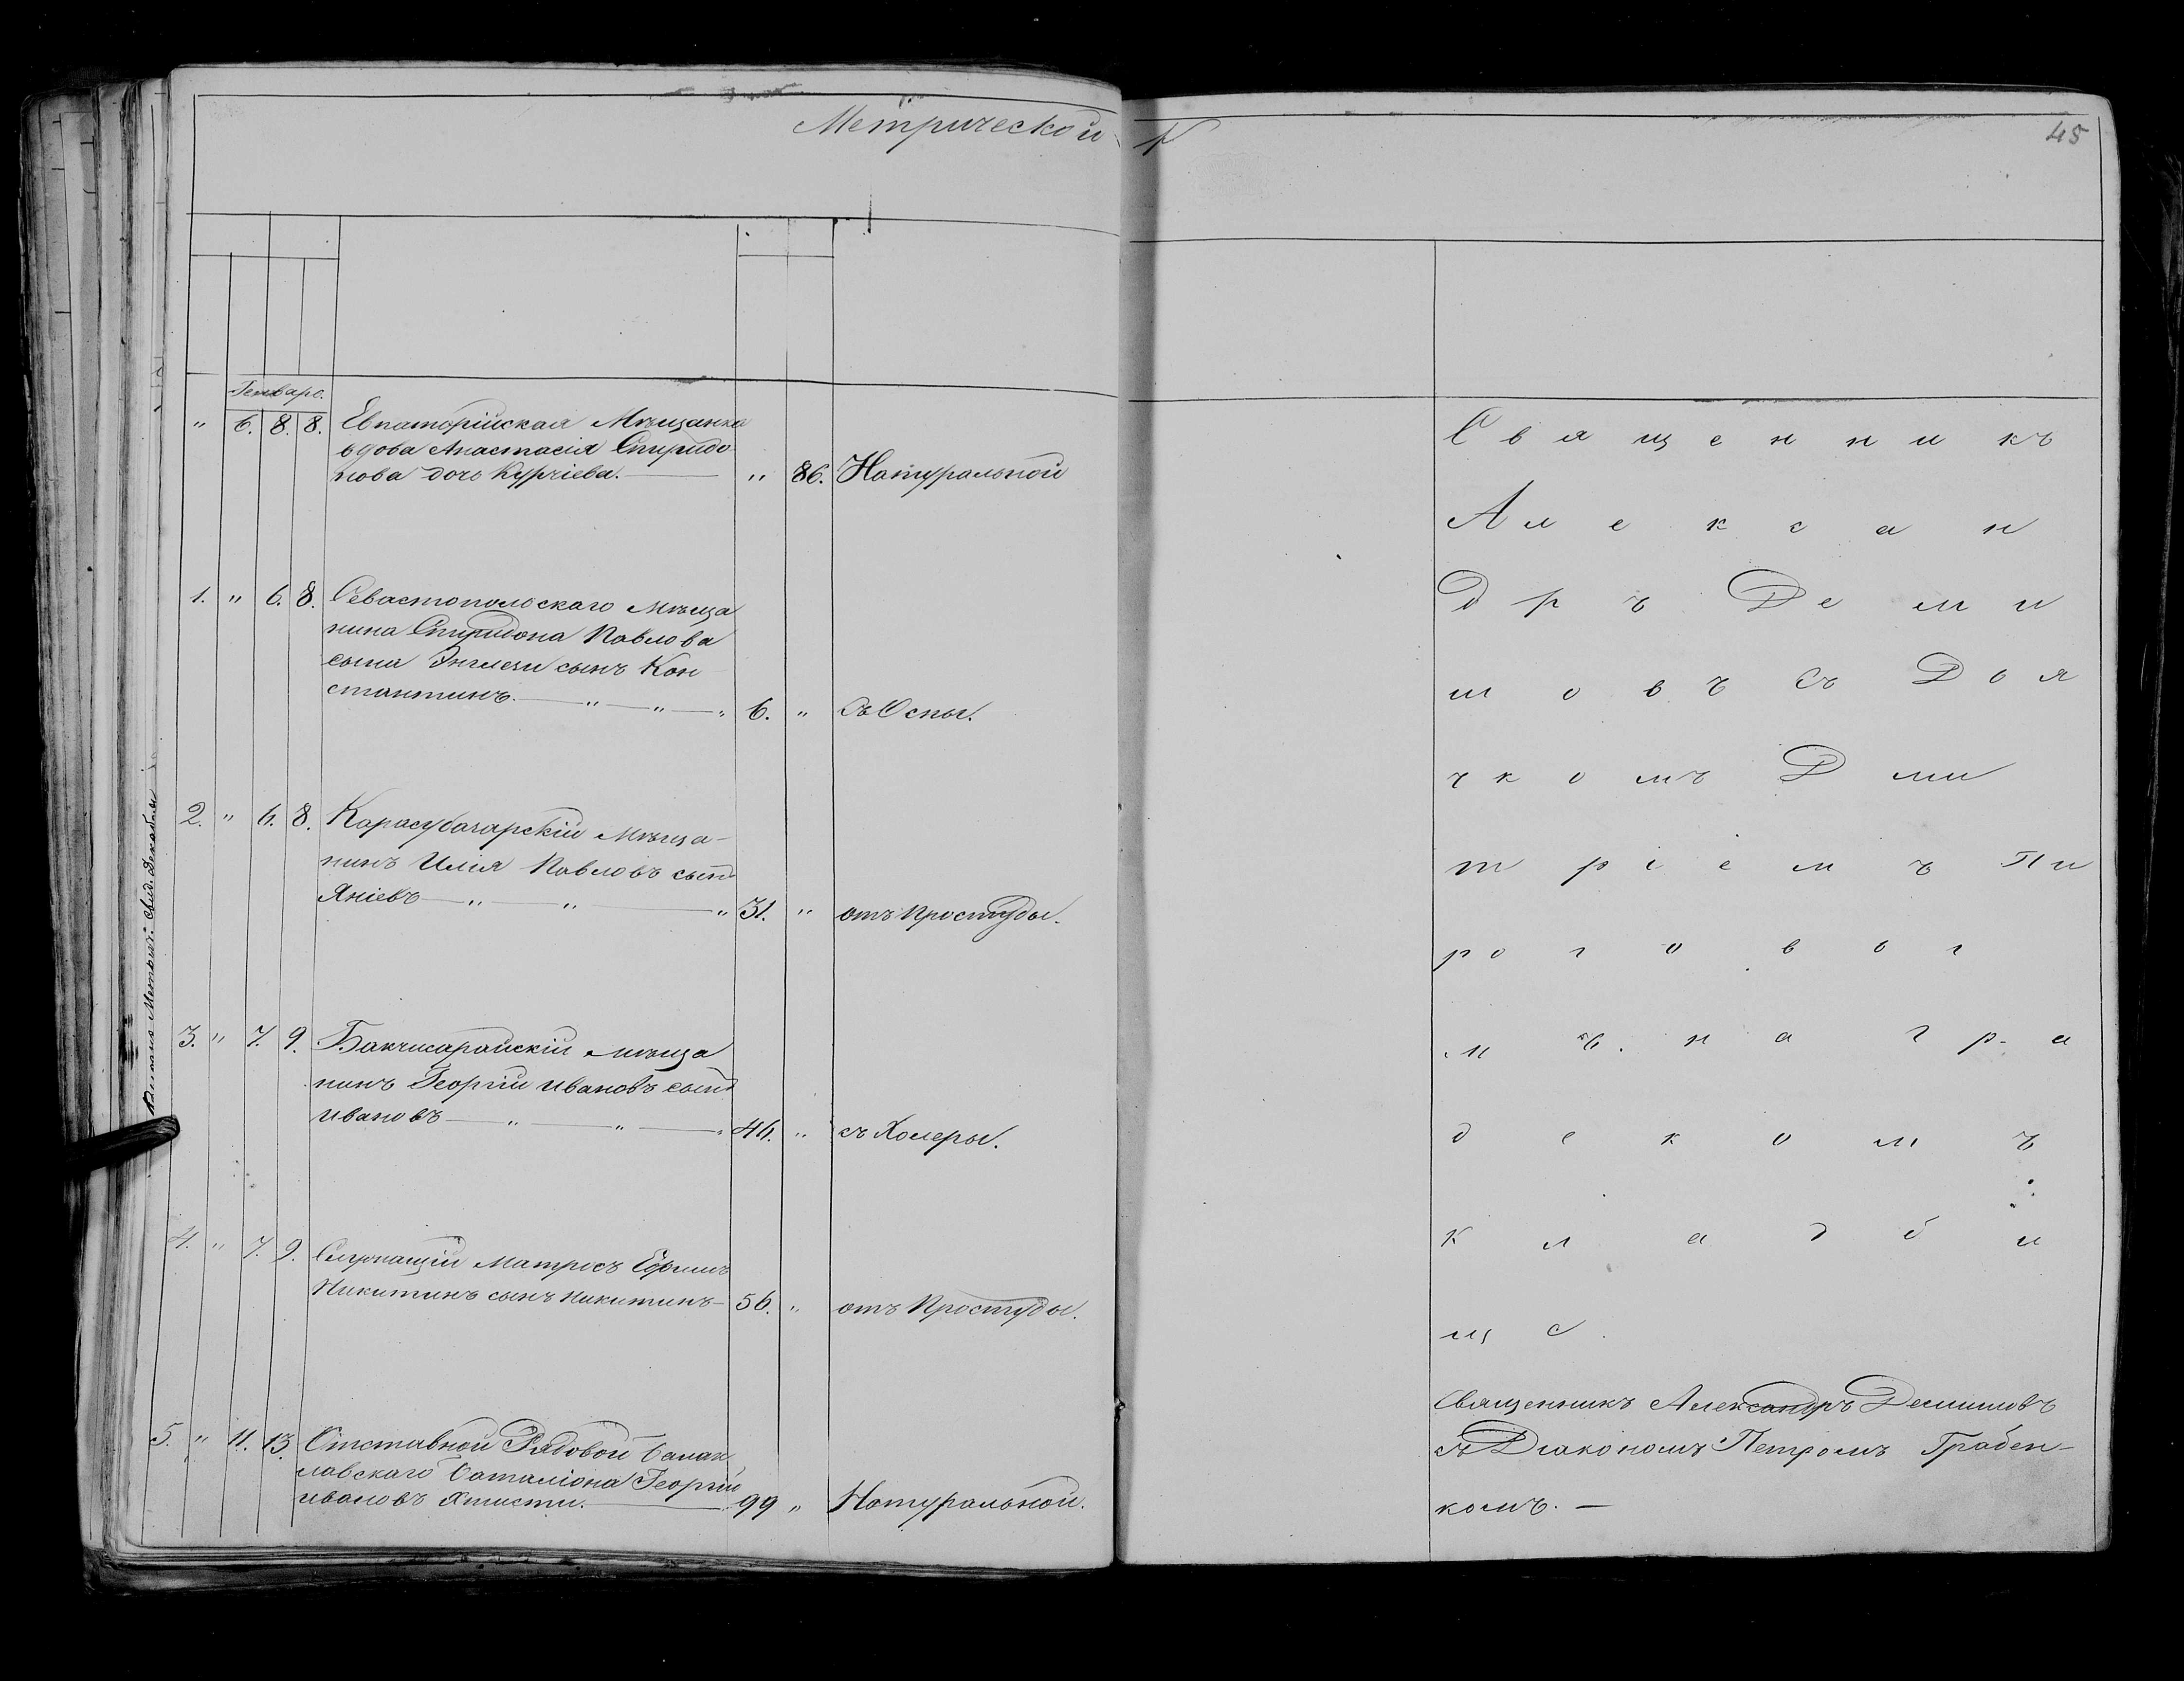 Метрической
45
Генваро.
" 6. 8. 8. Евпаторійская Мѣщанка
вдова Анастасія Спиридо
нова дочь Курчіева. " 86. Натуральной
1. " 6. 8. Севастопольскаго мѣща
нина Спиридона Павлова
сына Энглези сынъ Кон
стантинъ. " " " 6. " Съ Оспы.
2. " 6. 8. Карасубазарскій мѣща-
нинъ Илія Павловъ сынъ
Яніевъ " " " 31. " отъ простуды.
3. " 7. 9. Бакчисарайскій мѣща
нинъ Георгій Ивановъ сынъ
Ивановъ " " " 46. " съ Холеры.
4. " 7. 9. Служащій матросъ Ефимъ
Никитинъ сынъ Никитинъ 56. " отъ Простуды.
5. " 11. 13. Отставной Рядовой Балак
лавскаго баталіона Георгій
Ивановъ Христи. 99 " Натуральной.
Священникъ
Алексан
дръ Деми
мовъ съ Дья
чкомъ Дми
тріемъ Пи
рогов
мъ. на гра
декомъ
кладби
ще.
Священникъ Александръ Демимовъ
съ Діакономъ Петромъ Грабен-
комъ. —